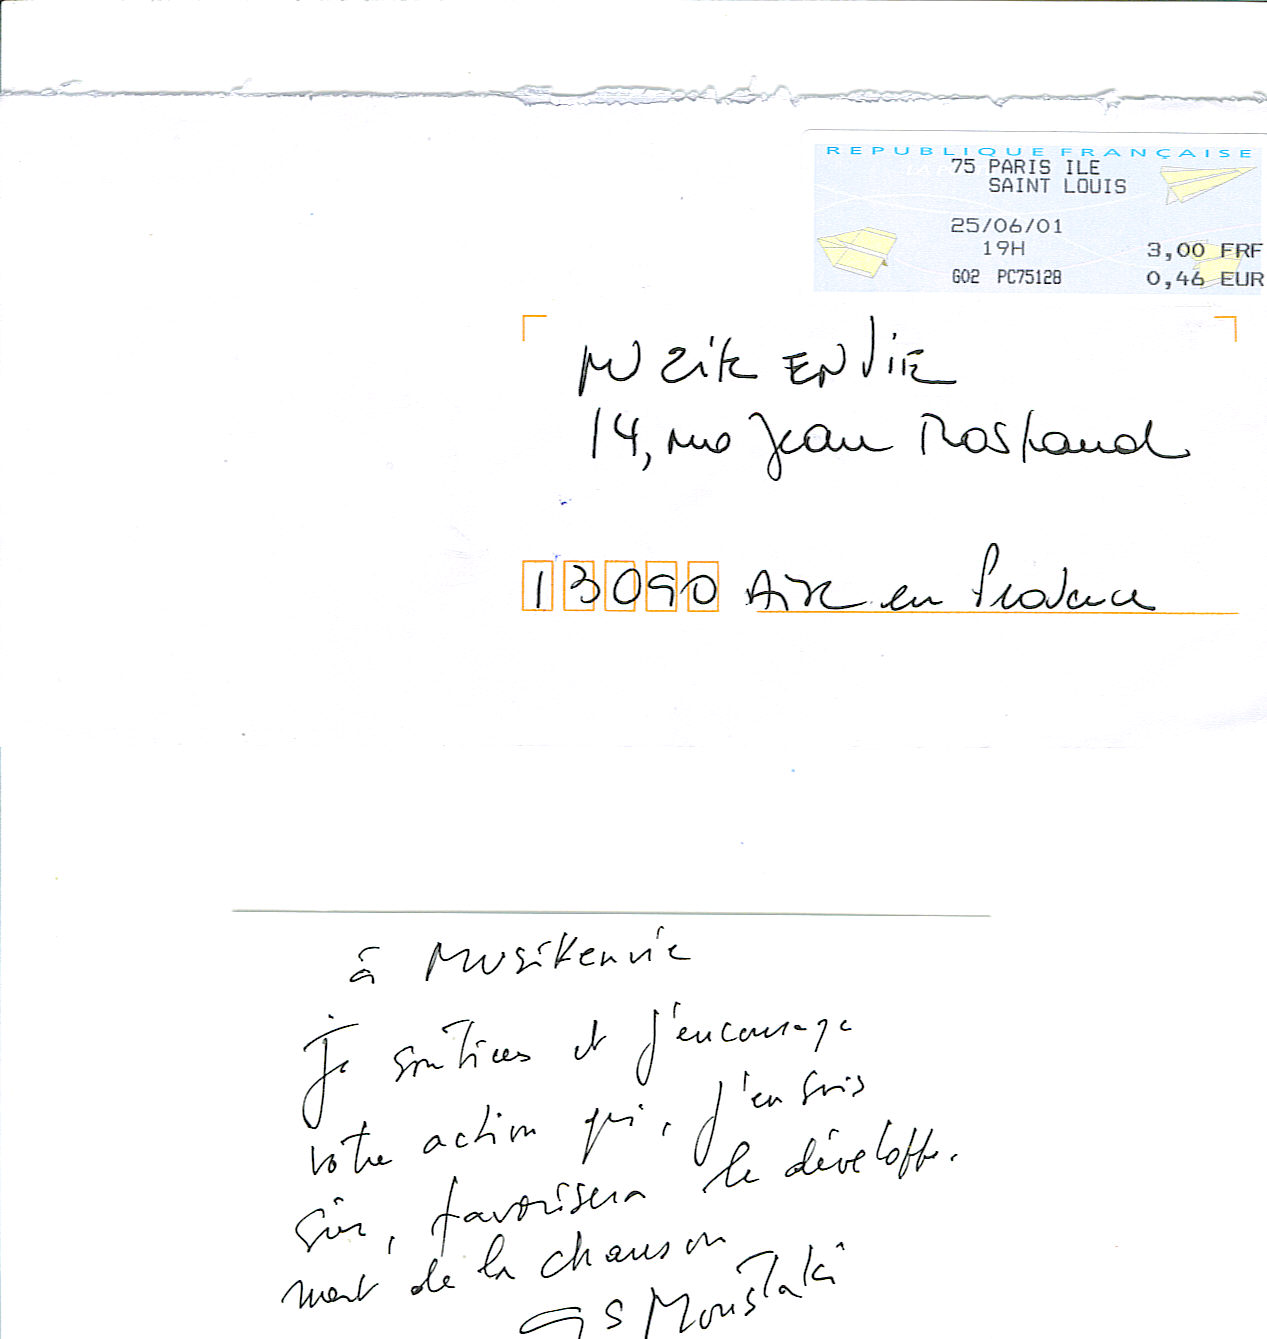 REPUBLIQUE FRANÇAISE
75 PARIS ILE
SAINT LOUIS
25/06/01
19H
3,00 FRF
G02 PC75128
0,46 EUR
MUZIK ENVIE
14, rue Jean Rostand
13090 Aix en Provence
à Musikenvie
Je soutiens et j'encourage
votre action qui, j'en suis
sûr, favorisera le développe-
ment de la chanson
GS Moustaki